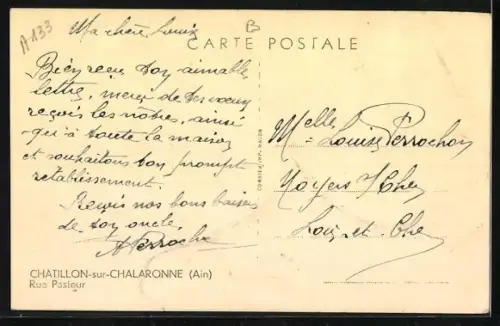 A-133
B
CARTE POSTALE
Ma chère Louise
Bien reçu ton aimable
lettre, merci de tes vœux
reçois les nôtres, ainsi
qu'à toute la maison
et souhaitons bon prompt
retablissement.
Reçois nos bons baisers
de ton oncle,
APerrochon
Melle
Louise Perrochon
Noyers s/ Cher
Loir-et-Cher
COMBIER IMP. MACON
CHATILLON-sur-CHALARONNE (Ain)
Rue Pasteur